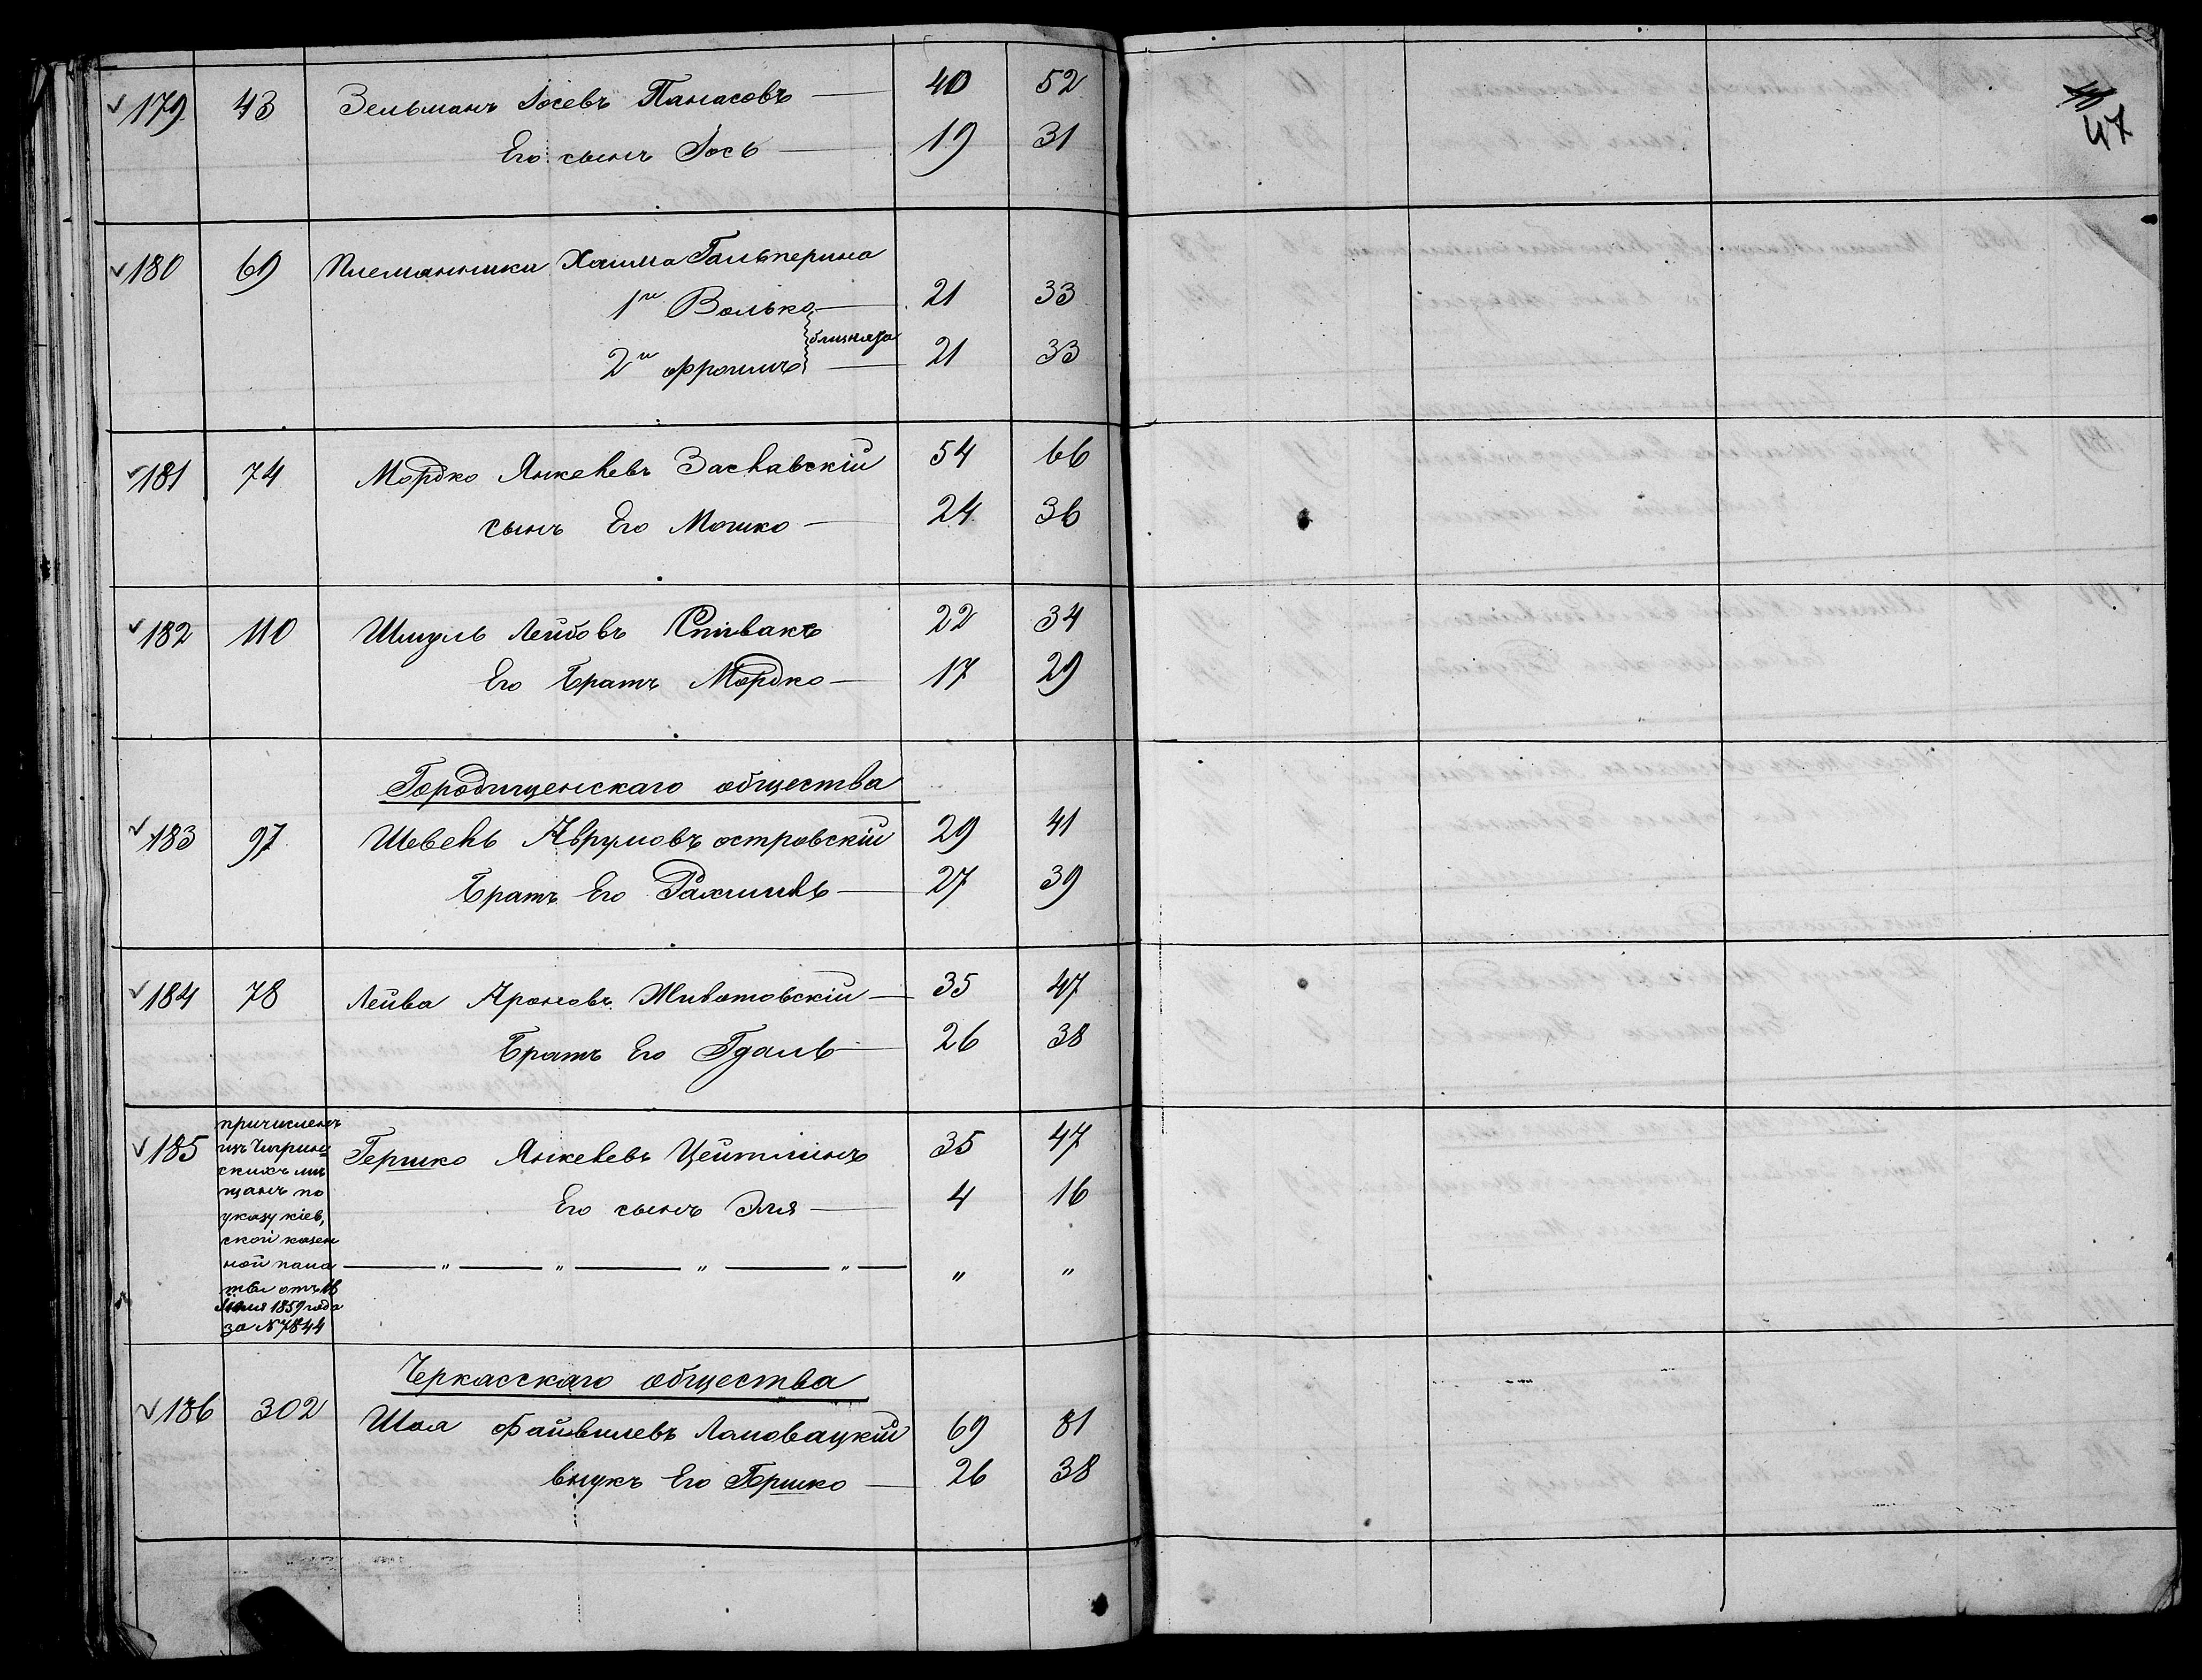 179 43 Зельманъ Іосевъ Панасовъ — 40 52
Его сынъ Іось — 19 31
180 69 Племянники Хаима Гальперина
1й Волько — 21 33
близнята
2й Фроимъ — 21 33
181 74 Мордко Янкелевъ Заславскій 54 66
сынъ Его Мошко — 24 36
182 110 Шмуль Лейбовъ Спивакъ 22 34
Его Братъ Мордко — 17 29
Городищенскаго общества
183 97 Шевель Аврумовъ островскій 29 41
Братъ Его Рахмиль — 27 39
184 78 Лейба Ароновъ Животовскій — 35 47
Братъ Его Гдаль — 26 38
причисленъ
изъ Чигрин
скихъ мѣ
щанъ по
указу кіев,
ской казен
ной пала
ты отъ 16
Іюля 1859 года
за № 7844
185 Гершко Янкелевъ Цейтлинъ 35 47
Его сынъ Эля — 4 16
— " — " — " — " — " "
Черкасскаго общества
186 302 Шоя Файвишевъ Лановацкій 69 81
внукъ Его Гершко — 26 38
47